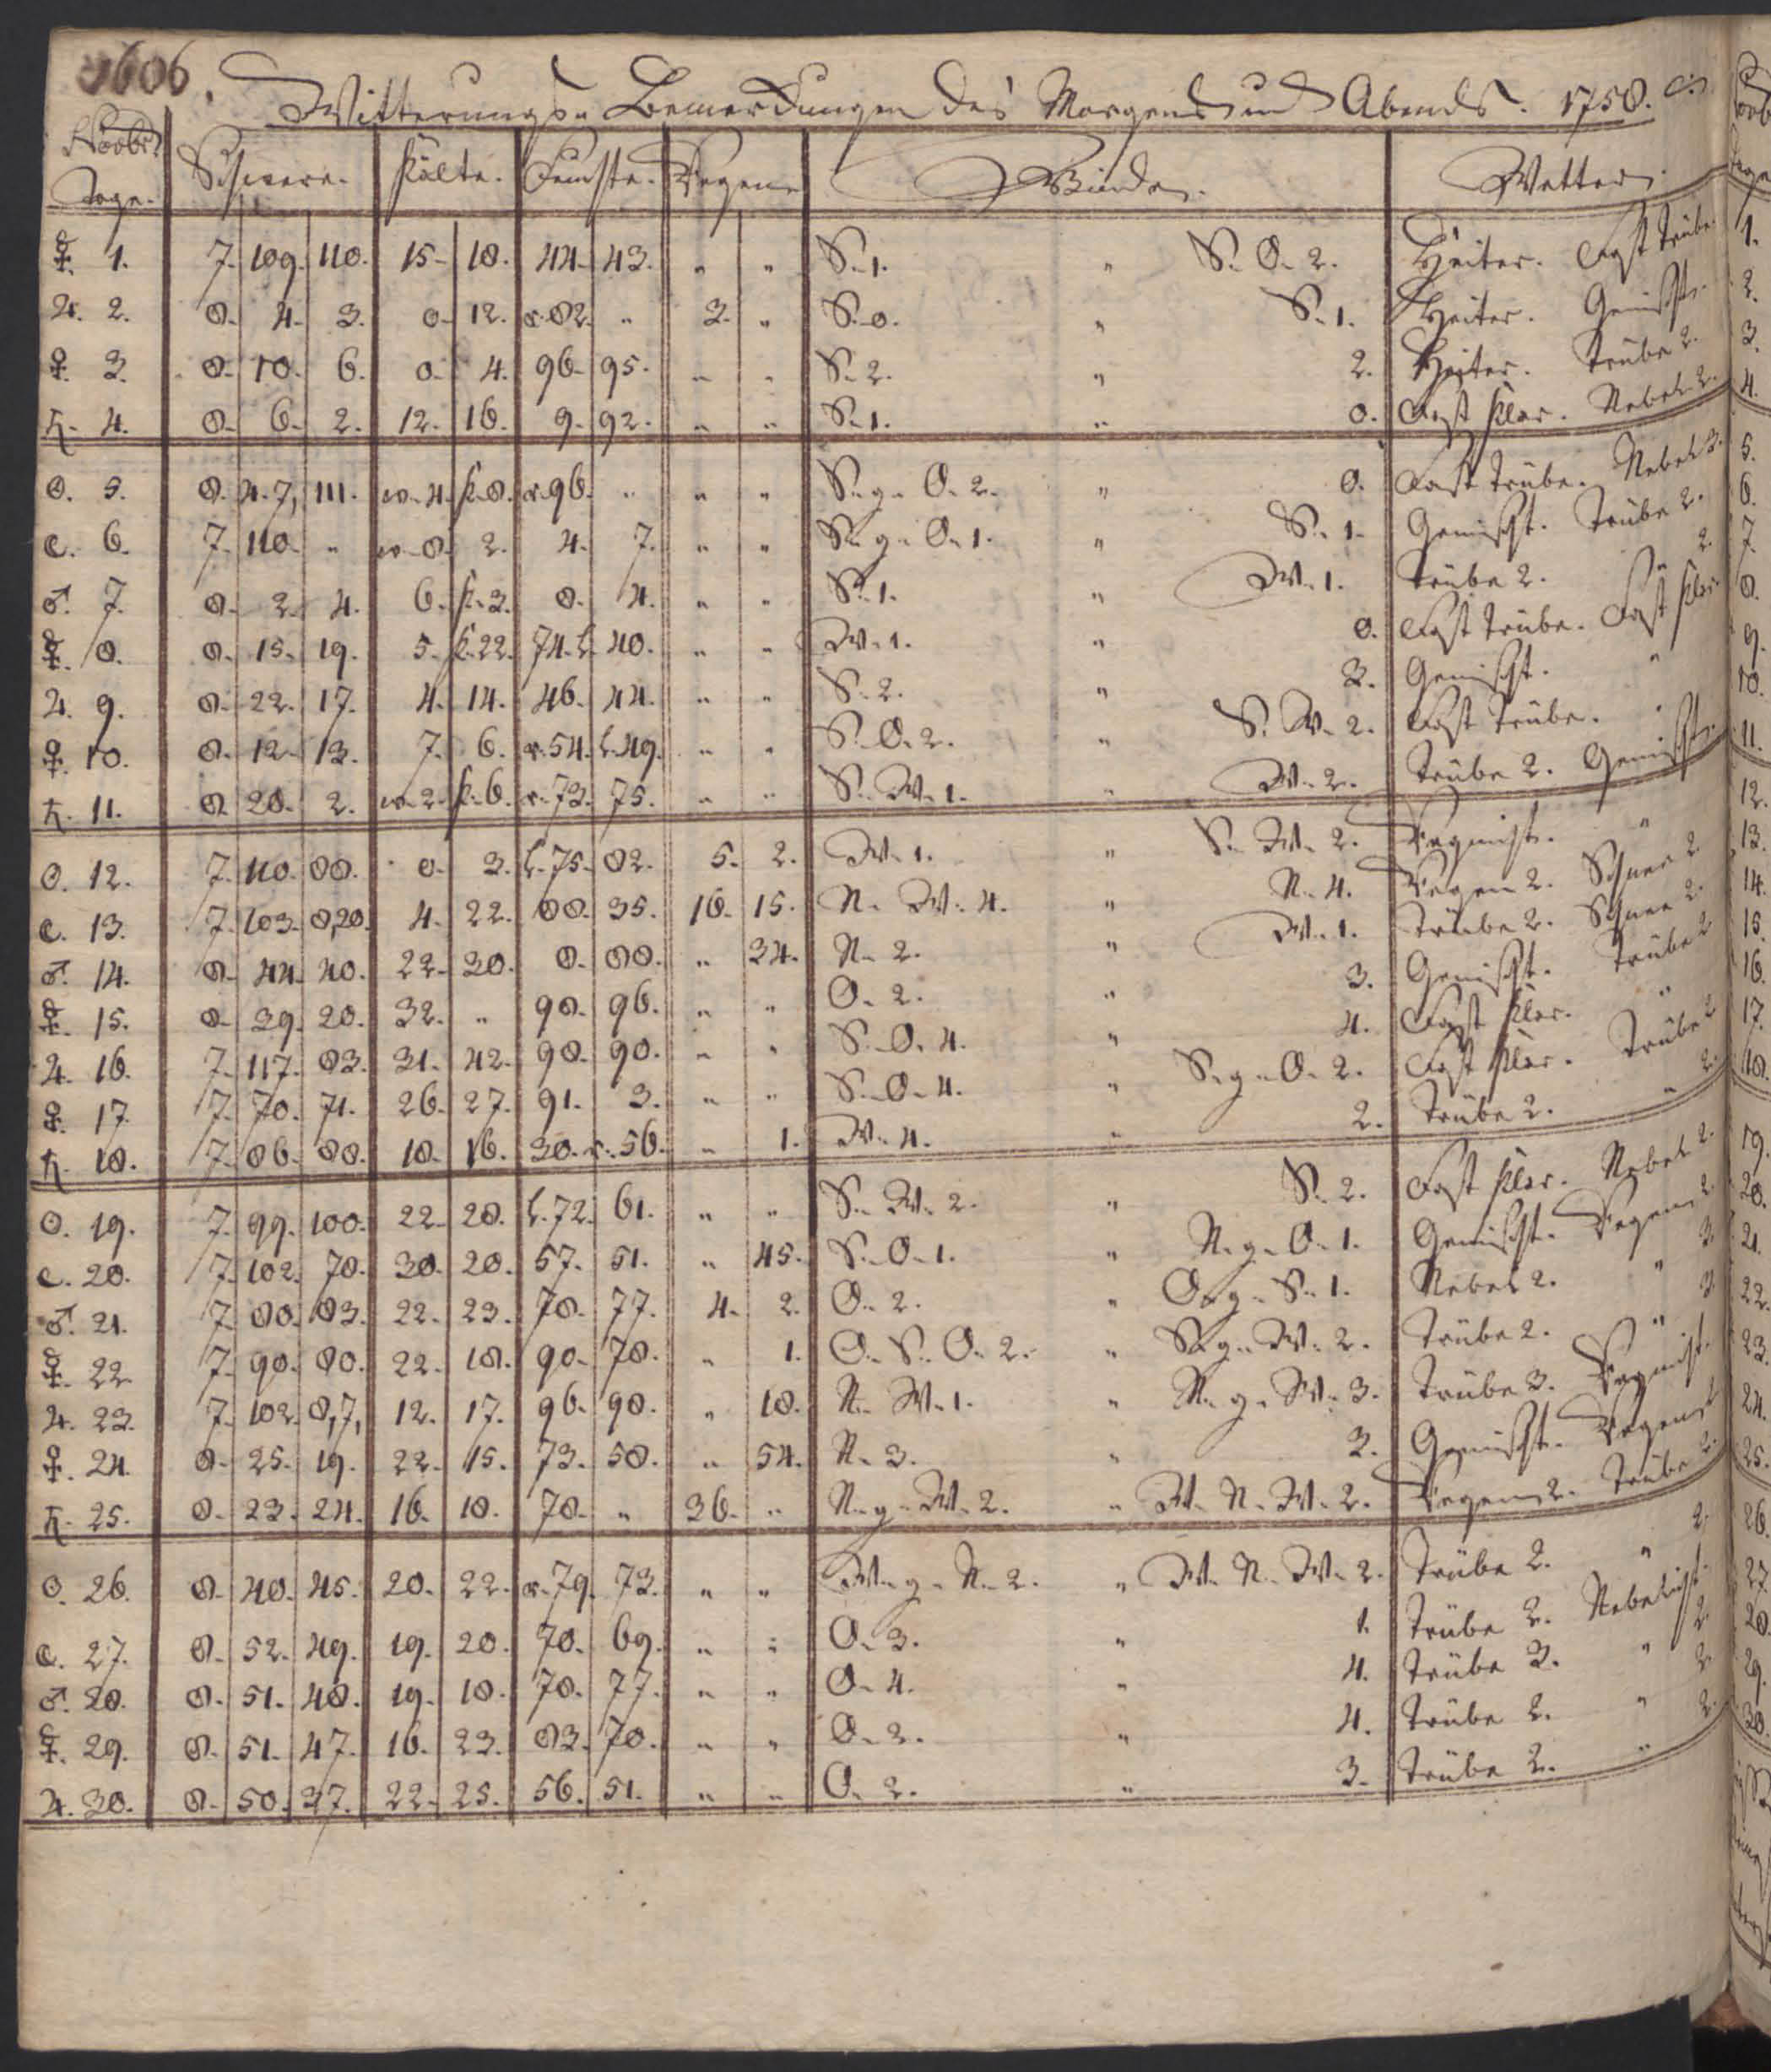 Witterungs-Bemerckungen des Morgends und Abends. 1758.
Novbr. Schwere. Kälte. Feuchte. Regen Winde. Wetter.
Tage.
☿. 1. 7. 109. 110. 15. 18. 44. 43. " " S. 1. " S. O. 2. Heiter. Fast trübe.
♃. 2. 8. 4. 3. 8. 12. r. 82. " 3. " S. 0. " S. 1. Heiter. Gemischt.
♀. 3. 8. 10. 6. 8. 4. 96. 95. " " S. 2. " 2. Heiter. Trübe 2.
♄. 4. 8. 6. 2. 12. 16. 9. 92. " " S. 1. " 0. Fast klar. Nebel 2.
☉. 5. 8. 4. 7, 111. w. 4. k. 8. r. 96. " " " S. g. O. 2. " 0. Fast trübe. Nebel 3.
☾. 6. 7. 110. " w. 8. 2. 4. 7. " " S. g. O. 1. " S. 1. Gemischt. Trübe 2.
♂. 7. 8. 2. 4. 6. k. 3. 8. 4. " " S. 1. " W. 1. Trübe 2. " 2.
☿. 8. 8. 15. 19. 5. k. 22. 74. l. 40. " " W. 1. " 0. Fast trübe. Fast klar
♃. 9. 8. 22. 17. 4. 14. 46. 44. " " S. 2. " 3. Gemischt. "
♀. 10. 8. 12. 13. 7. 6. r. 54. l. 49. " " S. O. 2. " S. W. 2. Fast trübe. "
♄. 11. 8. 20. 2. w. 2. k. 6. r. 73. 75. " " S. W. 1. " W. 2. Trübe 2. Gemischt.
☉. 12. 7. 110. 88. 8. 3. l. 75. 82. 5. 2. W. 1. " S. W. 2. Regnicht. "
☾. 13. 7. 103. 8,20. 4. 22. 88. 35. 16. 15. N. W. 4. " N. 4. Regen 2. Schnee 2
♂. 14. 8. 44. 40. 22. 30. 8. 88. " 34. N. 2. " W. 1. Trübe 2. Schnee 2.
☿. 15. 8. 39. 20. 32. " 98. 96. " " O. 2. " 3. Gemischt. Trübe 2
♃. 16. 7. 117. 83. 31. 42. 98. 90. " " S. O. 4. " 4. Fast klar. "
♀. 17. 7. 70. 71. 26. 27. 91. 3. " " S. O. 4. " S. g. O. 2. Fast klar. Trübe 2
♄. 18. 7. 86. 88. 18. 16. 30. r. 56. " 1. W. 4. " 2. Trübe 2. " 2.
☉. 19. 7. 99. 100. 22. 28. l. 72. 61. " " S. W. 2. " S. 2. Fast klar. Nebel 2.
☾. 20. 7. 102. 78. 30. 20. 57. 51. " 45. S. O. 1. " N. g. O. 1. Gemischt. Regen 2
♂. 21. 7. 80. 83. 22. 23. 78. 77. 4. 2. O. 2. " O. g. S. 1. Nebel 2. " 3.
☿. 22. 7. 90. 80. 22. 18. 90. 78. " 1. O. S. O. 2. " S. g. W. 2. Trübe 2. " 3.
♃. 23. 7. 102. 8,7, 12. 17. 96. 98. " 18. N. W. 1. " N. g. W. 3. Trübe 3. Regnicht.
♀. 24. 8. 25. 19. 22. 15. 73. 58. " 54. N. 3. " 3. Gemischt. Regen 2
♄. 25. 8. 23. 24. 16. 18. 78. " 36. " N. g. W. 2. " W. N. W. 2. Regen 2. Trübe 2.
☉. 26. 8. 40. 45. 20. 22. r. 79. 73. " " W. g. N. 2. " W. N. W. 2. Trübe 2. " 2.
☾. 27. 8. 52. 49. 19. 20. 70. 69. " " O. 3. " 1. Trübe 2. Nebelicht.
♂. 28. 8. 51. 48. 19. 18. 78. 77. " " O. 4. " 4. Trübe 3. " 2.
☿. 29. 8. 51. 47. 16. 23. 83. 70. " " O. 2. " 4. Trübe 2. " 2.
♃. 30. 8. 50. 37. 22. 25. 56. 51. " " O. 2. " 3. Trübe 2. " 2.